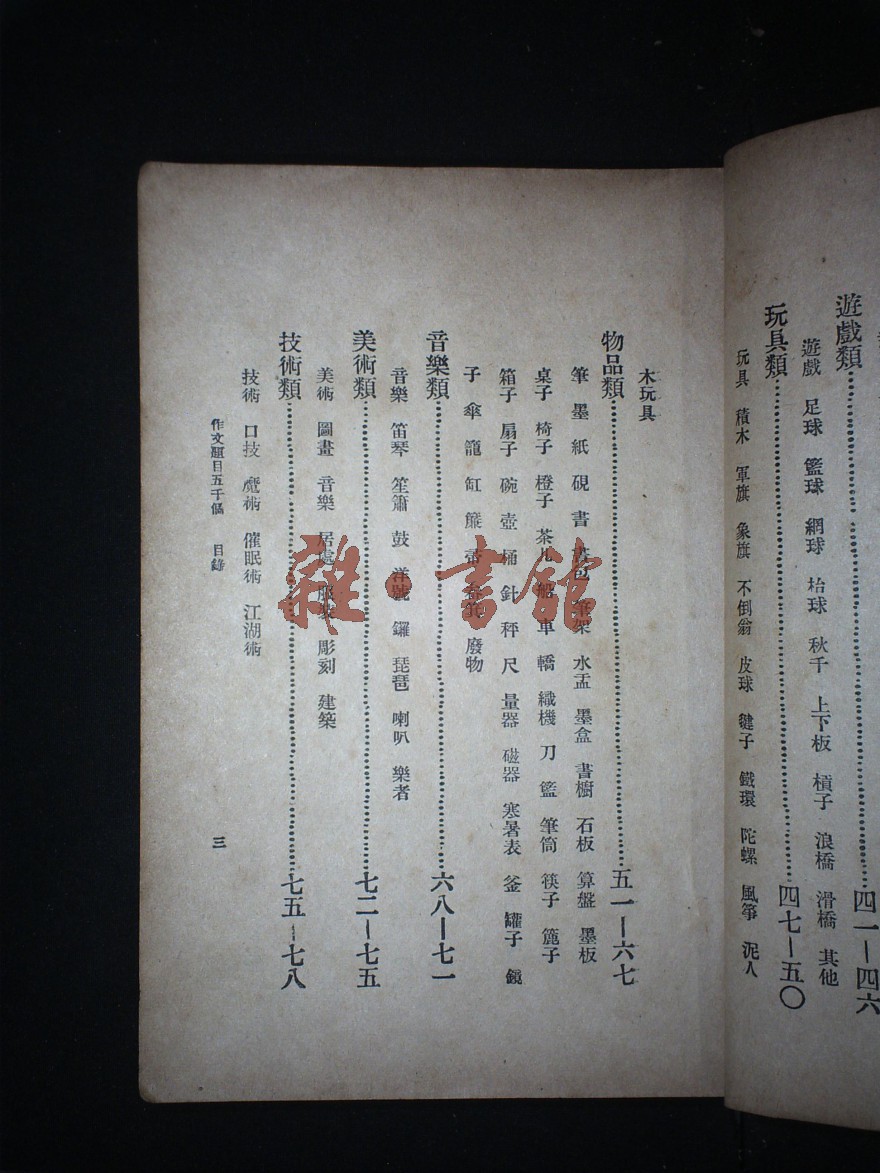 遊戲類 四一—四六
遊戲 足球 籃球 網球 枱球 秋千 上下板 槓子 浪橋 滑橋 其他
玩具類 四七—五〇
玩具 積木 軍旗 象旗 不倒翁 皮球 毽子 鐵環 陀螺 風箏 泥人
木玩具
物品類 五一—六七
筆 墨 紙 硯 書 書包 筆架 水盂 墨盒 書櫥 石板 算盤 墨板
桌子 椅子 橙子 茶几 船 車 轎 織機 刀 籃 筆筒 筷子 篦子
箱子 扇子 碗 壺 桶 針 秤 尺 量器 磁器 寒暑表 釜 罐子 鏡
子 傘 籠 缸 簾 畚箕 廢物
音樂類 六八—七一
音樂 笛琴 笙簫 鼓 洋號 鑼 琵琶 喇叭 樂者
美術類 七二—七五
美術 圖畫 音樂 居處 服裝 彫刻 建築
技術類 七五—七八
技術 口技 魔術 催眠術 江湖術
作文題目五千個 目錄
三
雜·書館